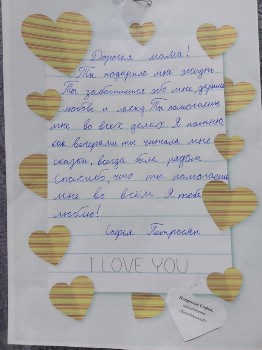 Дорогая мама!
Ты подарила мне жизнь.
Ты заботишься обо мне, даришь
любовь и ласку. Ты помогаешь
мне во всех делах. Я помню
как вечерами ты читала мне
сказки, всегда была рядом
Спасибо, что ты помогаешь
мне во всём. Я тебя
люблю!
Софья Петросян
I LOVE YOU
Петросян Софья,